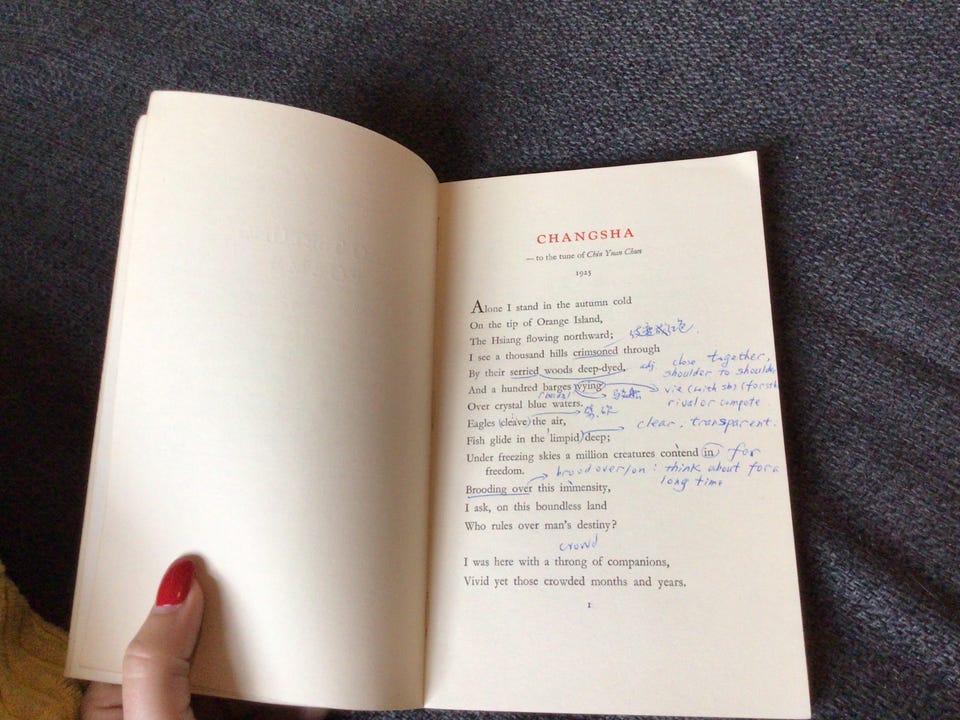 CHANGSHA
— to the tune of Chin Yuan Chun
1925
Alone I stand in the autumn cold
On the tip of Orange Island,
The Hsiang flowing northward;
I see a thousand hills crimsoned through
By their serried woods deep-dyed,
adj close together,
shoulder to shoulder
And a hundred barges vying
vie (with sb) (for sth
rival or compete
Over crystal blue waters.
Eagles cleave the air,
Fish glide in the limpid deep;
clear, transparent.
Under freezing skies a million creatures contend in
for
freedom.
brood over/on : think about for a
long time
Brooding over this immensity,
I ask, on this boundless land
Who rules over man's destiny?
crowd
I was here with a throng of companions,
Vivid yet those crowded months and years.
1